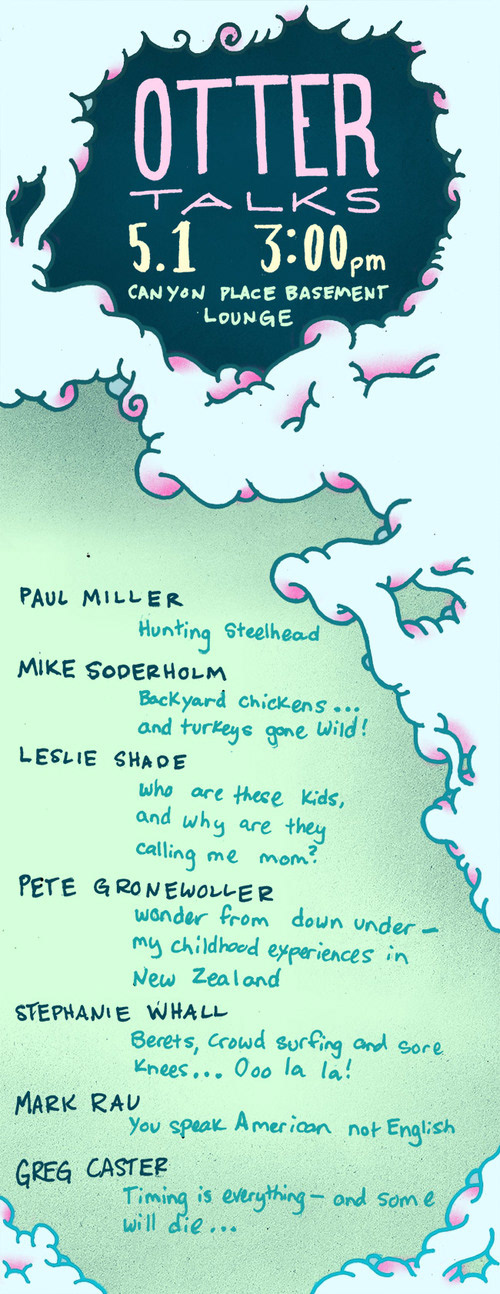 OTTER
TALKS
5.1 3:00pm
CANYON PLACE BASEMENT
LOUNGE
PAUL MILLER
Hunting Steelhead
MIKE SODERHOLM
Backyard chickens...
and turkeys gone wild!
LESLIE SHADE
who are these kids,
and why are they
calling me mom?
PETE GRONEWOLLER
wonder from down under—
my childhood experiences in
New Zealand
STEPHANIE WHALL
Berets, crowd surfing and sore
knees... Ooo la la!
MARK RAU
You speak American not English
GREG CASTER
Timing is everything— and some
will die...